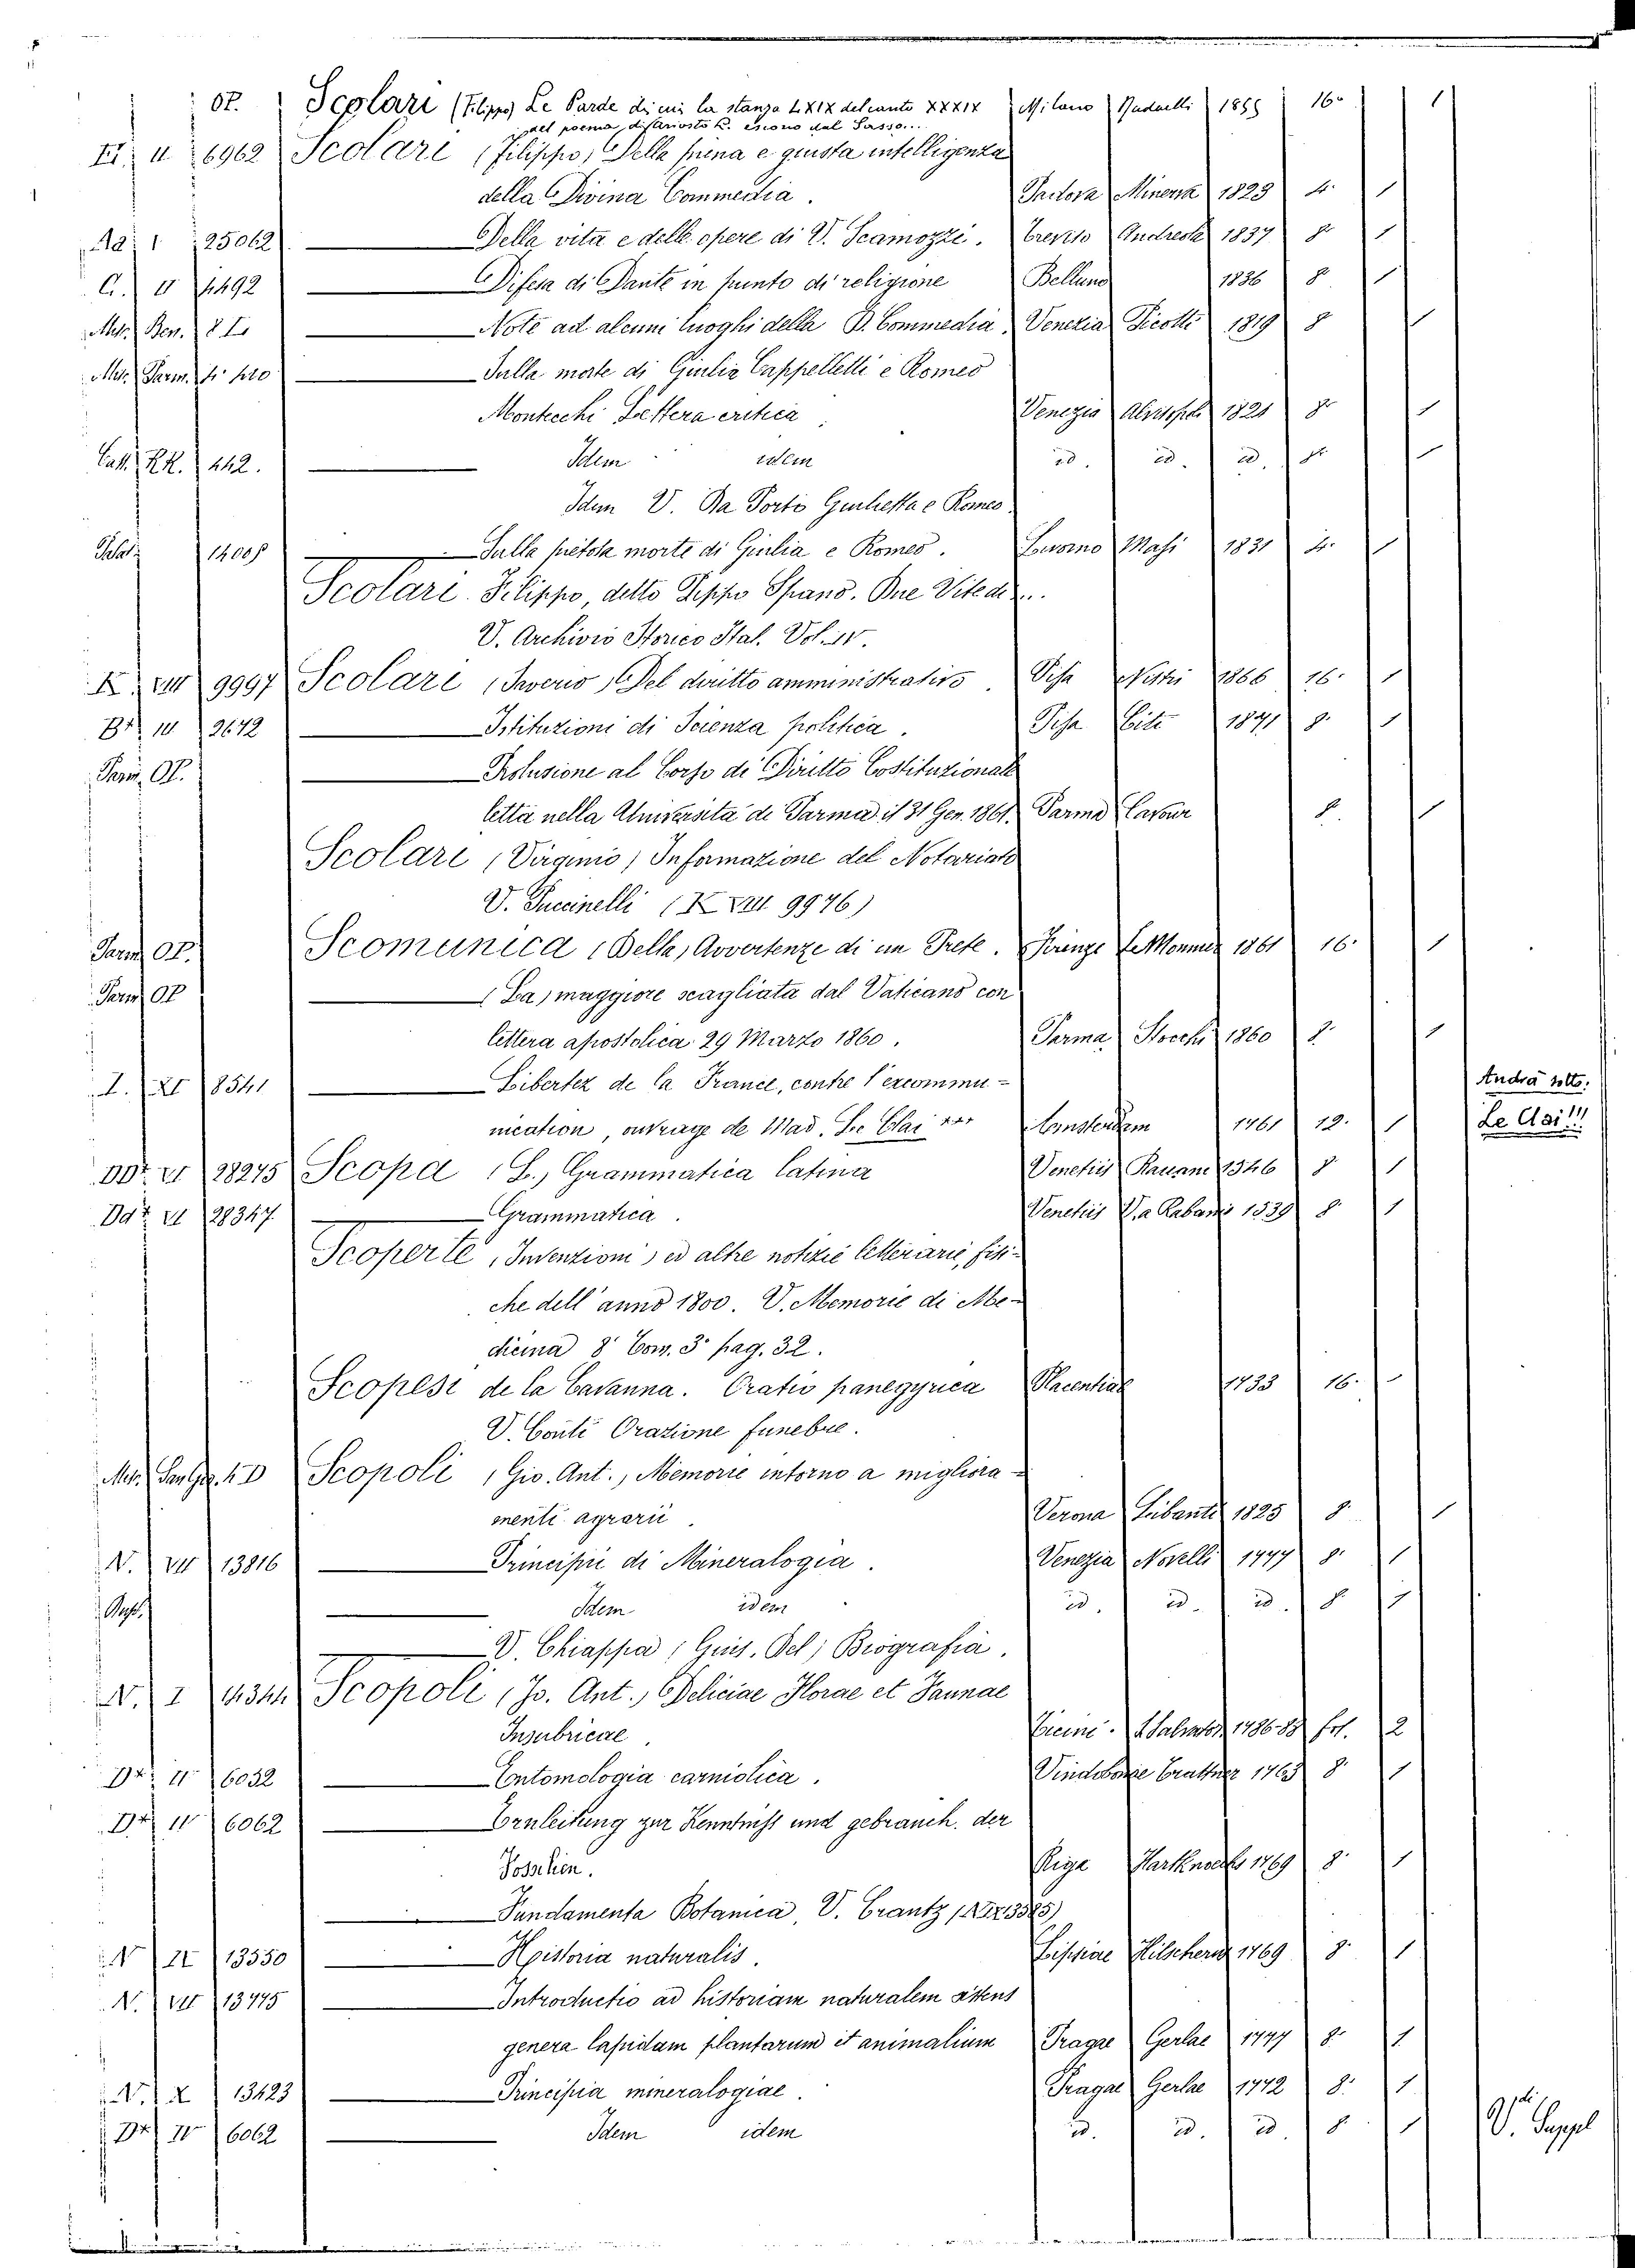 OP. Scolari (Filippo) Le Parde di cui la stanza LXIX del canto XXXIX Milano Radaelli 1855 16° 1
del poema di Ariosto L. escono dal Sasso...
II 6962 Scolari (Filippo) Della piena e giusta intelligenza
della Divina Commedia. Padova Minerva 1823 4. 1
Aa 1 25062 Della vita e delle opere di V. Scamozzi. Treviso Andreola 1837 8° 1
C. II 1492 Difesa di Dante in punto di religione Belluno 1836 8 1
Mss. Ben. 8 I. Note ad alcuni luoghi della D. Commedia Venezia Picotti 1819 8 1
Misc. Parm. 4° 410 Sulla morte di Giulia Cappelletti e Romeo
Montecchi Lettera critica Venezia Alvisopoli 1821 8° 1
Catt. RR. 442. Idem idem id. id. id. 8° 1
Idem V. Da Porto Giulietta e Romeo
Palat. 14008 Sulla pietosa morte di Giulia e Romeo. Livorno Masi 1831 4. 1
Scolari Filippo, detto Pippo Spano. Due Vite di ...
V. Archivio Storico Ital. Vol. IV.
K VIII 9997 Scolari (Saverio) Del diritto amministrativo. Pisa Nistri 1866 16. 1
B+ IV 9672 Istituzioni di Scienza politica. Pisa Citi 1871 8. 1
Parm. OP. Prolusione al Corso di Diritto Costituzionale
letta nella Università di Parma il 31 Gen. 1861. Parma Cavour 8. 1
Scolari (Virginio) Informazione del Notariato
V. Puccinelli (K VIII 9976)
Parm. OP. Scomunica (Della) Avvertenze di un Prete. Firenze Le Monnier 1861 16. 1
Parm. OP (La) maggiore scagliata dal Vaticano con
lettera apostolica 29 Marzo 1860. Parma Stocchi 1860 8. 1
I. XI 8541 Libertez de la France, contre l'excommu-
nication, ouvrage de Mad. Le Clai *** Amsterdam 1761 12. 1
Andrà sotto:
Le Clai!!!
DD+ VI 28275 Scopa (L.) Grammatica latina Venetiis Ravani 1546 8 1
Dd+ VI 28347 Grammatica. Venetiis V. a Rabanis 1539 8 1
Scoperte, Invenzioni, ed altre notizie letterarie, fisi-
che dell'anno 1800. V. Memorie di Me-
dicina 8° Tom. 3° pag. 32.
Scopesi de la Cavanna. Oratio panegyrica Placentiae 1733 16.
V. Conti Orazione funebre.
Scopoli (Gio. Ant.) Memorie intorno a migliora-
menti agrarii. Verona Libanti 1825 8. 1
N. VII 13816 Principii di Mineralogia. Venezia Novelli 1777 8. 1
Idem idem id. id. id. 8. 1
V. Chiappa (Gius. Del) Biografia.
N. I Scopoli (Jo. Ant.) Deliciae Florae et Faunae
Insubricae. Ticini. S. Salvatoris 1786-88 fol. 2
D+ II 6032 Entomologia carniolica. Vindobonae Trattner 1763 8. 1
D+ IV 6062 Ernleitung zur Kenntniss und gebrauch. der
Fossilien. Riga Hartknochs 1769 8. 1
Fundamenta Botanica, V. Crantz
N IX 13550 Historia naturalis. Lipsiae Hilscheri 1769 8. 1
N. VII 13775 Introductio ad historiam naturalem sistens
genera lapidum plantarum et animalium Pragae Gerlae 1777 8. 1
N. X 13423 Principia mineralogiae. Pragae Gerlae 1772 8. 1
D+ IV 6062 Idem idem id. id. id. 8 1
V. Suppl